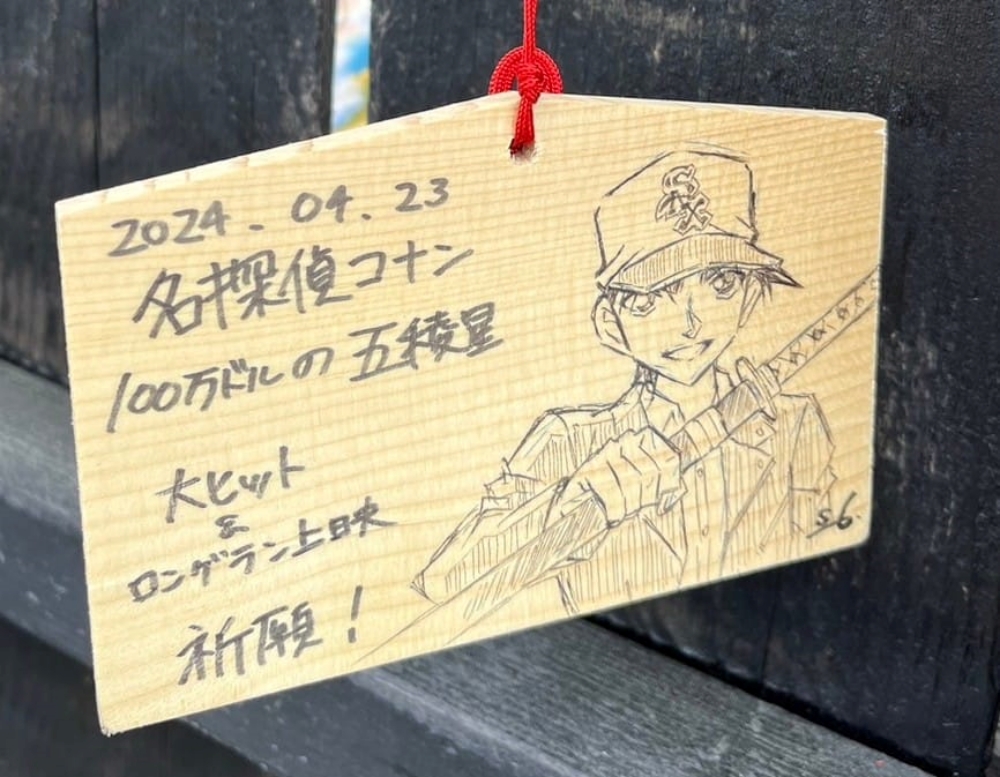 2024.04.23
名探偵コナン
100万ドルの五稜星
大ヒット
&
ロングラン上映
祈願!
SAX
S6.